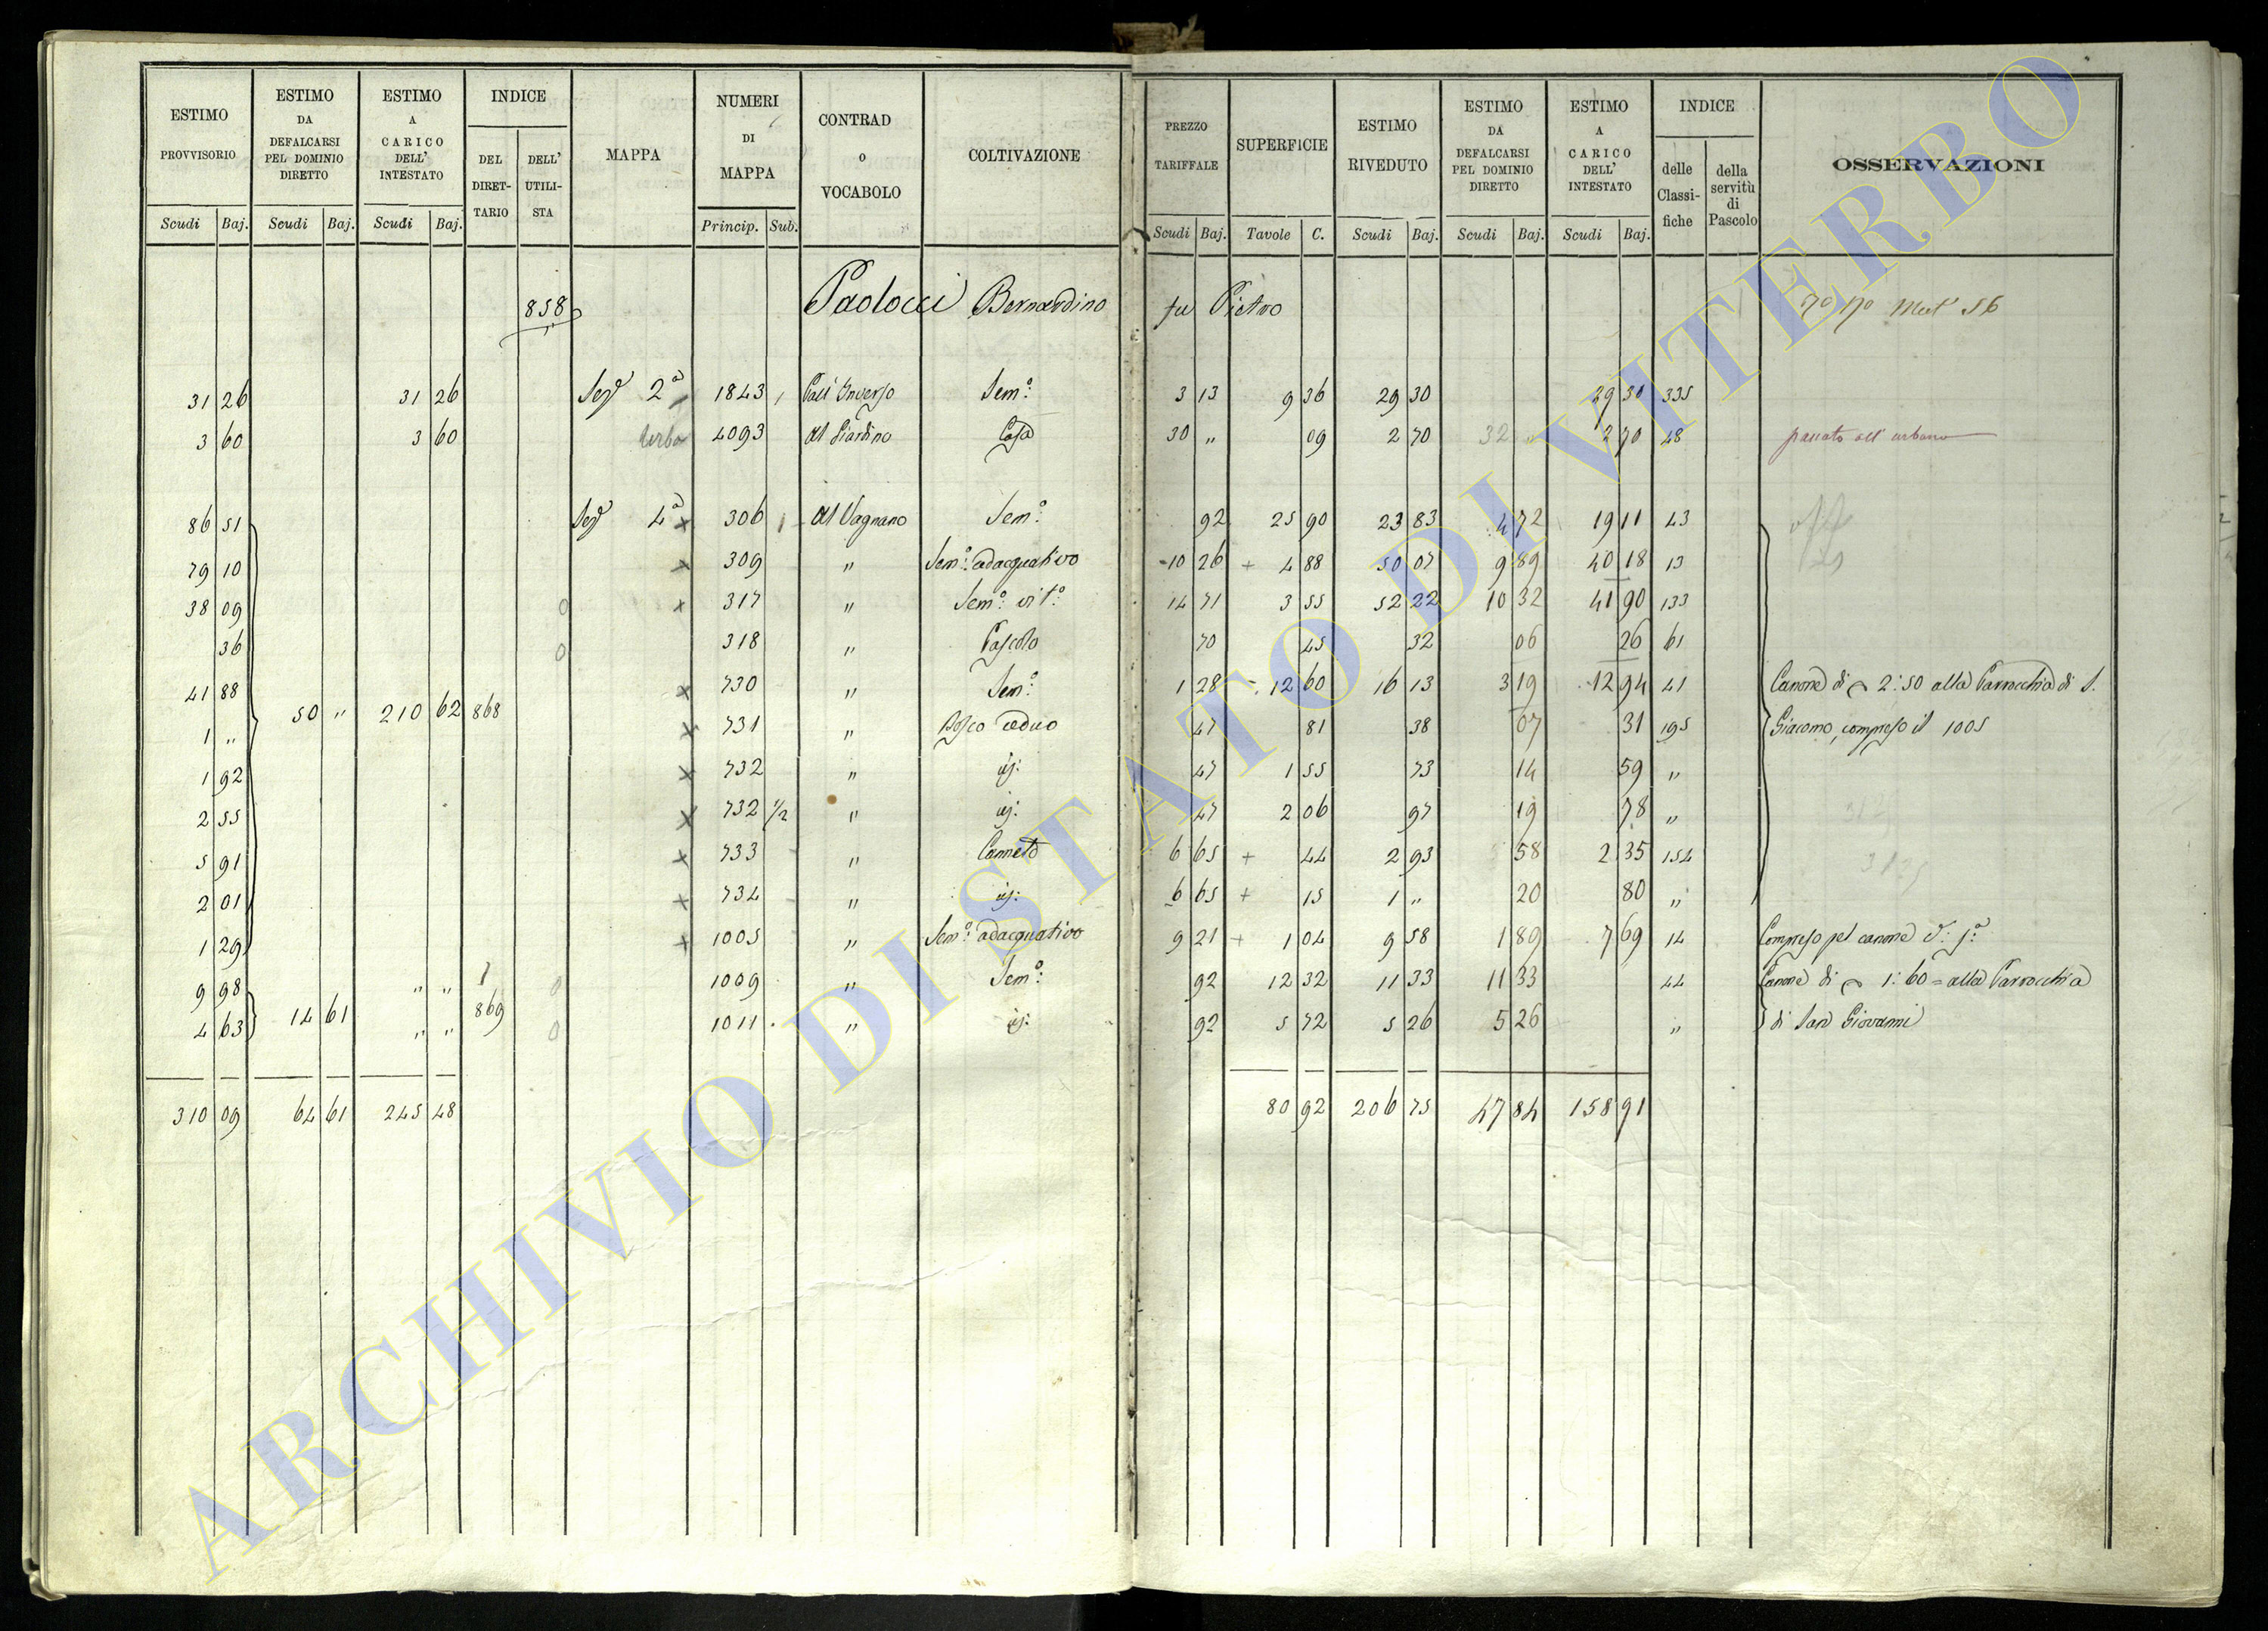 ESTIMO PROVVISORIO Scudi Baj.
ESTIMO DA DEFALCARSI PEL DOMINIO DIRETTO Scudi Baj.
ESTIMO A CARICO DELL' INTESTATO Scudi Baj.
INDICE DEL DIRET- TARIO DELL' UTILI- STA
MAPPA
NUMERI DI MAPPA Princip. Sub.
CONTRAD o VOCABOLO
COLTIVAZIONE
PREZZO TARIFFALE Scudi Baj.
SUPERFICIE Tavole C.
ESTIMO RIVEDUTO Scudi Baj.
ESTIMO DA DEFALCARSI PEL DOMINIO DIRETTO Scudi Baj.
ESTIMO A CARICO DELL' INTESTATO Scudi Baj.
INDICE delle Classi- fiche della servitù di Pascolo
OSSERVAZIONI
858 Paolocci Bernardino fu Pietro
31 26 31 26 Sezᵉ 2ª 1843 Semº: 3 13 9 36 29 30 29 30 335
3 60 3 60 4093 Al Giardino Casa 30 " 09 2 70 32 2 70 48 passato all' urbano
86 51 Sezᵉ 4ª x 306 1 Al Vagnano Semº: 92 25 90 23 83 4 72 19 11 43
79 10 x 309 " Semº: adacquativo 10 26 + 4 88 50 07 9 89 40 18 13
38 09 0 x 317 " Semº: vitº: 14 71 3 55 52 22 10 32 41 90 133
36 0 318 " Pascolo 70 45 32 06 26 61
41 88 x 730 " Semº: 1 28 12 60 16 13 3 19 12 94 41 Canone di 2:50 alla Parrocchia di S.
1 " 50 " 210 62 868 x 731 " Bosco ceduo 47 81 38 07 31 195 Giacomo, compreso il 1005
1 92 x 732 " id: 47 1 55 73 14 59 "
2 55 x 732 1/2 " id: 47 2 06 97 19 78 "
5 91 x 733 " Canneto 6 65 + 44 2 93 58 2 35 154
2 01 x 734 " id: 6 65 + 15 1 " 20 80 "
1 29 x 1005 " Semº: adacquativo 9 21 + 1 04 9 58 1 89 7 69 14 Compreso pel canone
9 98 " " 0 1009 " Semº: 92 12 32 11 33 11 33 44 Canone di 1:60 = alla Parrocchia
4 63 14 61 " " 869 0 1011 " id: 92 5 72 5 26 5 26 " di San Giovanni
310 09 64 61 245 48 80 92 206 75 47 84 158 91
ARCHIVIO DI STATO DI VITERBO